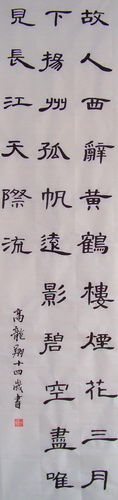 故人西辭黃鶴樓煙花三月
下揚州孤帆遠影碧空盡唯
見長江天際流
高龍翔十四歲書